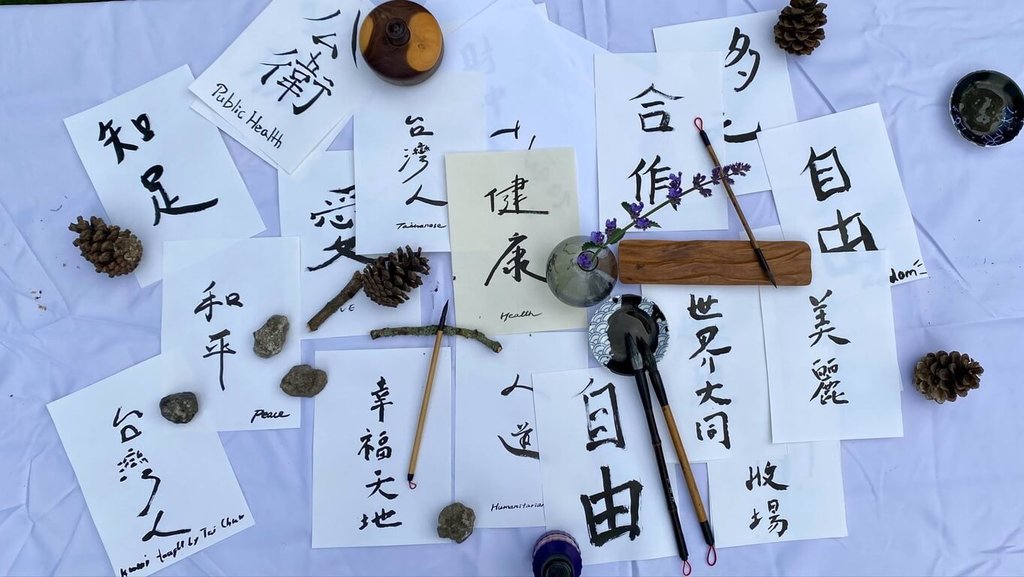 公衛
Public Health
知足
台灣人
Taiwanese
愛
合作
多
自由
dom
健康
Health
和平
Peace
世界大同
美麗
台灣人
taught by Tai Chun
幸福天地
人道
Humanitarian
自由
牧場